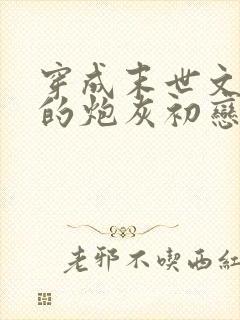 穿成末世文
的炮灰初戀
老邪不喫西紅